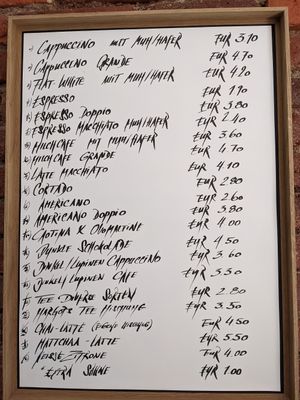 Cappuccino mit Muh/Hafer EUR 3.70
Cappuccino Grande EUR 4.70
Flat White mit Muh/Hafer EUR 4.20
Espresso EUR 1.90
Espresso Doppio EUR 3.80
Espresso Macchiato Muh/Hafer EUR 2.40
Milchcafe mit Muh/Hafer EUR 3.60
Milchcafe Grande EUR 4.70
Latte Macchiato EUR 4.10
Cortado EUR 2.80
Americano EUR 2.60
Americano Doppio EUR 3.80
EUR 4.00
Dunkle Schokolade EUR 4.50
Dinkel/Lupinen Cappuccino EUR 3.60
Dinkel/Lupinen Cafe EUR 3.50
Tee Diverse Sorten EUR 2.80
Tee Mischung EUR 3.50
Chai-Latte EUR 4.50
Mattchaa-Latte EUR 5.50
EUR 4.00
Extra Sahne EUR 1.00